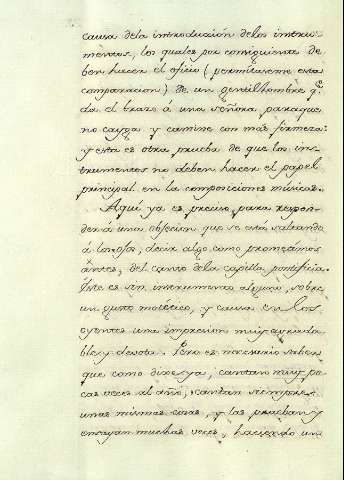 causa dela introduccion delos instru-
mentos, los quales por consiguiente de-
ben hacer el oficio (permitaseme esta
comparacion) de un gentilhombre q.e
da el brazo á una señora paraque
no cayga y camine con mas firmeza:
y esta es otra prueba de que los ins-
trumentos no deben hacer el papel
principal en la composiciones músicas.
Aqui ya es preciso, para respon-
der á una objecion que se está saltando
á los ojos, decir algo como prometimos
ántes, del canto dela capilla pontificia.
Este es sin instrumento alguno, sobre
un gusto motético, y causa en los
oyentes una impresion muy agrada-
ble y devota. Pero es necesario saber
que como dixe ya, cantan muy po-
cas veces al año, cantan siempre
unas mismas cosas, y las prueban y
ensayan muchas veces, haciendo un